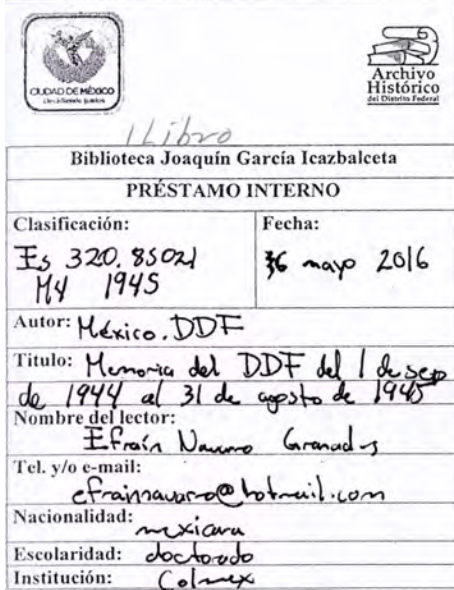 CIUDAD DE MÉXICO
Decidiendo juntos
Archivo
Histórico
del Distrito Federal
1 Libro
Biblioteca Joaquín García Icazbalceta
PRÉSTAMO INTERNO
Clasificación:
Es 320.85021
M4 1945
Fecha:
mayo 2016
Autor: México. DDF
Titulo: Memoria del DDF del 1 de sep
de 1944 al 31 de agosto de 1945
Nombre del lector:
Efraín Navarro Granados
Tel. y/o e-mail:
efrainnavarro@hotmail.com
Nacionalidad:
mexicana
Escolaridad: doctorado
Institución: Colmex